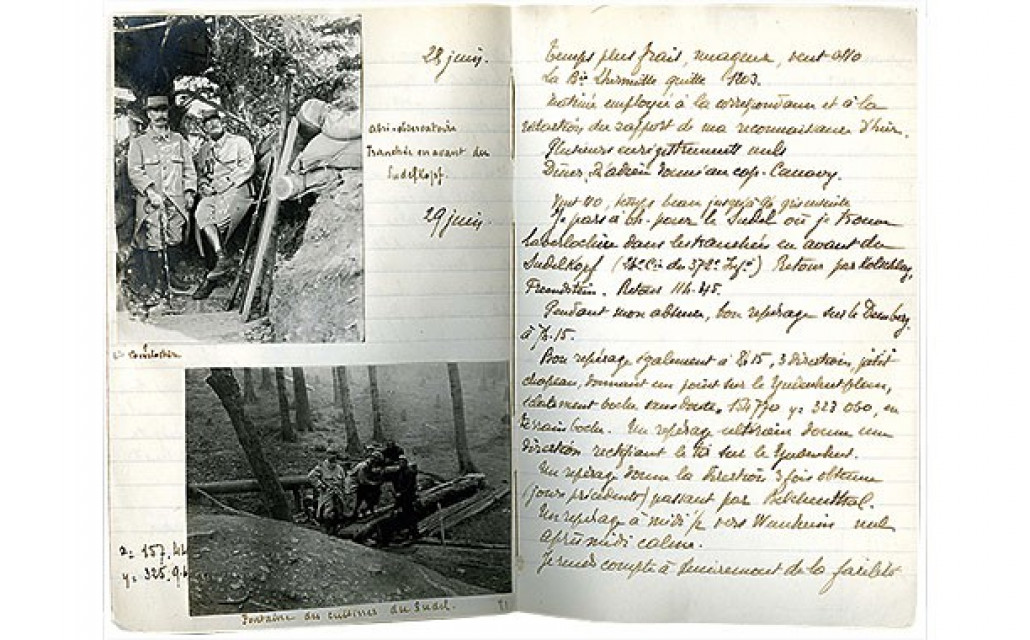 28 juin.
abri-observatoire
Tranchée en avant du
Sudelkopf.
29 juin.
x = 157.44
y = 325.9
Fontaine des cuisines du Sudel.
Temps plus frais, nuageux, vent
La Bie quitte 1203.
Matinée employée à la correspondance et à la
rédaction du rapport de ma reconnaissance d'hier.
Plusieurs enregistrements nuls
Dîner, d'adieu donné au cap.
Vent temps beau jusqu'à
Je pars à 6h. pour le Sudel où je trouve
dans les tranchées en avant du
Sudelkopf (Cie du 372e Infie) Retour par Kolschlag,
Freundstein. Retour 11h.45.
Pendant mon absence, bon repérage sur le
à 7h.15.
Bon repérage également à 8h15, 3 directions, petit
chapeau, donnant un point sur le
éclatement boche sans doute, 154770 y = 323 060, en
terrain boche. Un repérage ultérieur donne une
direction rectifiant le tir sur le
Un repérage donne la direction 3 fois obtenue
(jours précédents) passant par Belchenthal.
Un repérage à midi ½ vers nul
après midi calme.
Je rends compte à de la